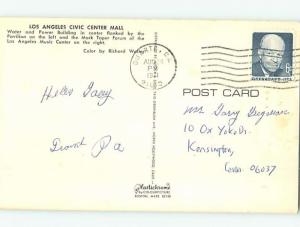 LOS ANGELES CIVIC CENTER MALL
Water and Power Building in center flanked by the
Pavilion on the left and the Mark Taper Forum of the
Los Angeles Music Center on the right.
Color by Richard
AUG
PM
1971
EISENHOWER · USA
POST CARD
Hello Gary
Mr Gary
10 Ox Yoke Dr.
Kensington,
Conn. 06037
Plastichrome
BY COLOURPICTURE
BOSTON, MASS. 02130